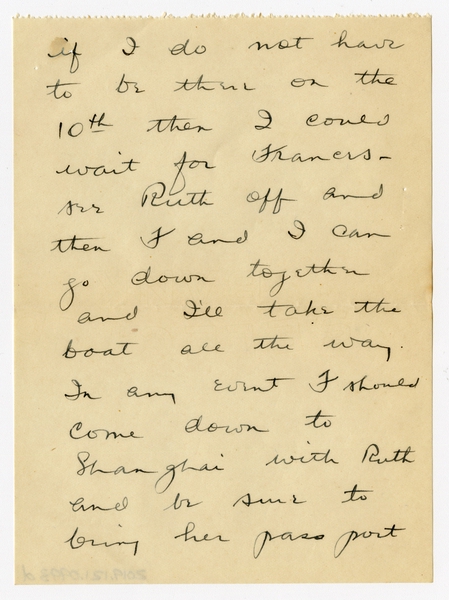 if I do not have
to be there on the
10th then I could
wait for Frances-
see Ruth off and
then F and I can
go down together
and I'll take the
boat all the way.
In any event F should
come down to
Shanghai with Ruth
and be sure to
bring her pass port